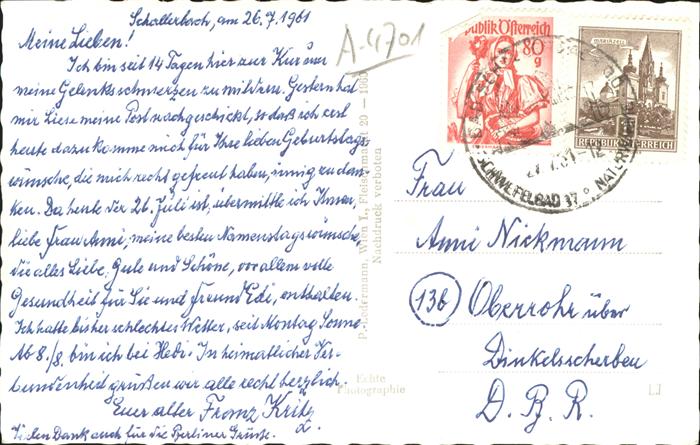 Schallerbach, am 26.7.1961
A-4701
Meine Lieben!
Ich bin seit 14 Tagen hier zur Kur um
meine Gelenksschmerzen zu mildern. Gestern hat
mir Liese meine Post nachgeschickt, so daß ich erst
heute dazu komme mich für Ihre lieben Geburtstags-
wünsche, die mich recht gefreut haben, innig zu dan-
ken. Da heute der 26. Juli ist, übermittle ich Ihnen,
liebe Frau Anni, meine besten Namenstagswünsche,
die alles Liebe, Gute und Schöne, vor allem volle
Gesundheit für Sie und Freund Edi, enthalten.
Ich hatte bisher schlechtes Wetter, seit Montag Sonne.
Ab 8./8. bin ich bei Hedi. In heimatlicher Ver-
bundenheit grüßen wir alle recht herzlich.
Euer alter Franz Kritz
Vielen Dank auch für die Berliner Grüsse.
P. Ledermann, Wien I., Fleischmarkt 20 - 1960
Nachdruck verboten
Echte
Photographie
Republik Österreich
80
g
MARIAZELL
REPUBLIK ÖSTERREICH
27.7.61-12
SCHWEFELBAD 37°
Frau
Anni Nickmann
13b Oberrohr über
Dinkelscherben
D. B. R.